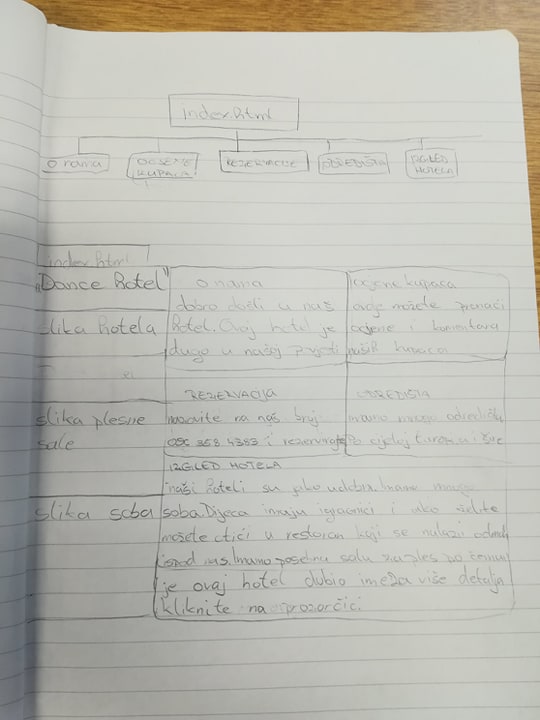 index.html
o nama
OCJENE
KUPACA
REZERVACIJE
ODREDIŠTA
IZGLED
HOTELA
index.html
"Dance hotel"
slika hotela
o nama
dobro došli u naš
hotel. Ovaj hotel je
dugo u našoj
ocjene kupaca
ovdje možete pronaći
ocjene i komentara
naših kupaca
slika plesne
sale
REZERVACIJA
nazovite na naš broj
4383 i rezervirajte
ODREDIŠTA
imamo mnogo odredišta
po cijeloj i šire
slika soba
IZGLED HOTELA
naši hoteli su jako udobni. Imamo mnogo
soba. Djeca imaju igraonici i ako želite
možete otići u restoran koji se nalazi odmah
ispod nas. Imamo posebnu salu za ples po čemu
je ovaj hotel dobio ime. Za više detalja
kliknite na prozorčići